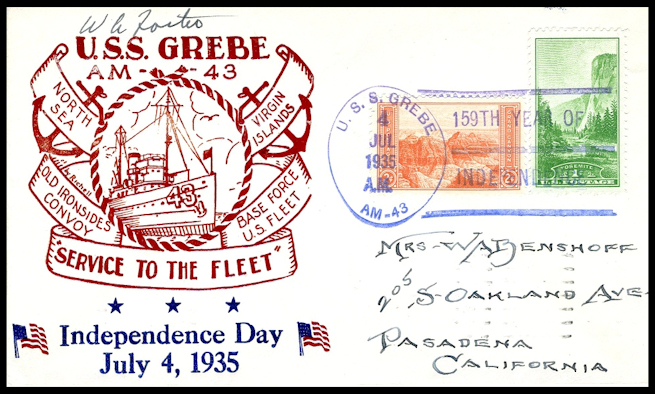 U.S.S. GREBE
AM-43
NORTH SEA
VIRGIN ISLANDS
43
OLD IRONSIDES CONVOY
BASE FORCE U.S. FLEET
"SERVICE TO THE FLEET"
Independence Day
July 4, 1935
U. S. S. GREBE
4
JUL
1935
A.M.
AM-43
159TH YEAR OF
INDEPENDEN
YOSEMITE
1¢
U.S. POSTAGE
2¢
MRS-WABENSHOFF
205 S-OAKLAND AVE-
PASADENA
CALIFORNIA